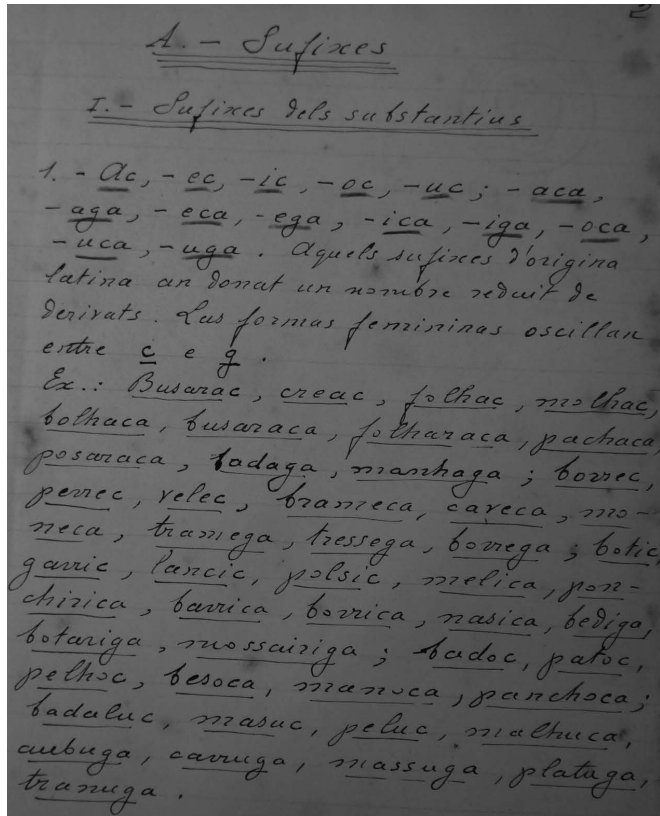 2
A. - Sufixes
I. - Sufixes dels substantius
1. - Ac, - ec, - ic, - oc, - uc ; - aca,
- aga, - eca, - ega, - ica, - iga, - oca,
- uca, - uga. Aquels sufixes d'origina
latina an donat un nombre reduit de
derivats. Las formas femininas oscillan
entre c e g.
Ex.: Busarac, creac, folhac, molhac,
bolhaca, busaraca, folharaca, pachaca,
posaraca, badaga, manhaga ; borrec,
perrec, velec, brameca, caveca, mo-
neca, tramega, tressega, borrega ; botic,
garric, lancic, polsic, melica, pon-
chirica, barrica, borrica, nasica, bediga,
botariga, mossairiga ; badoc, patoc,
pelhoc, besoca, manoca, panchoca ;
badaluc, masuc, peluc, malhuca,
aubuga, carruga, massuga, plataga,
tranuga.